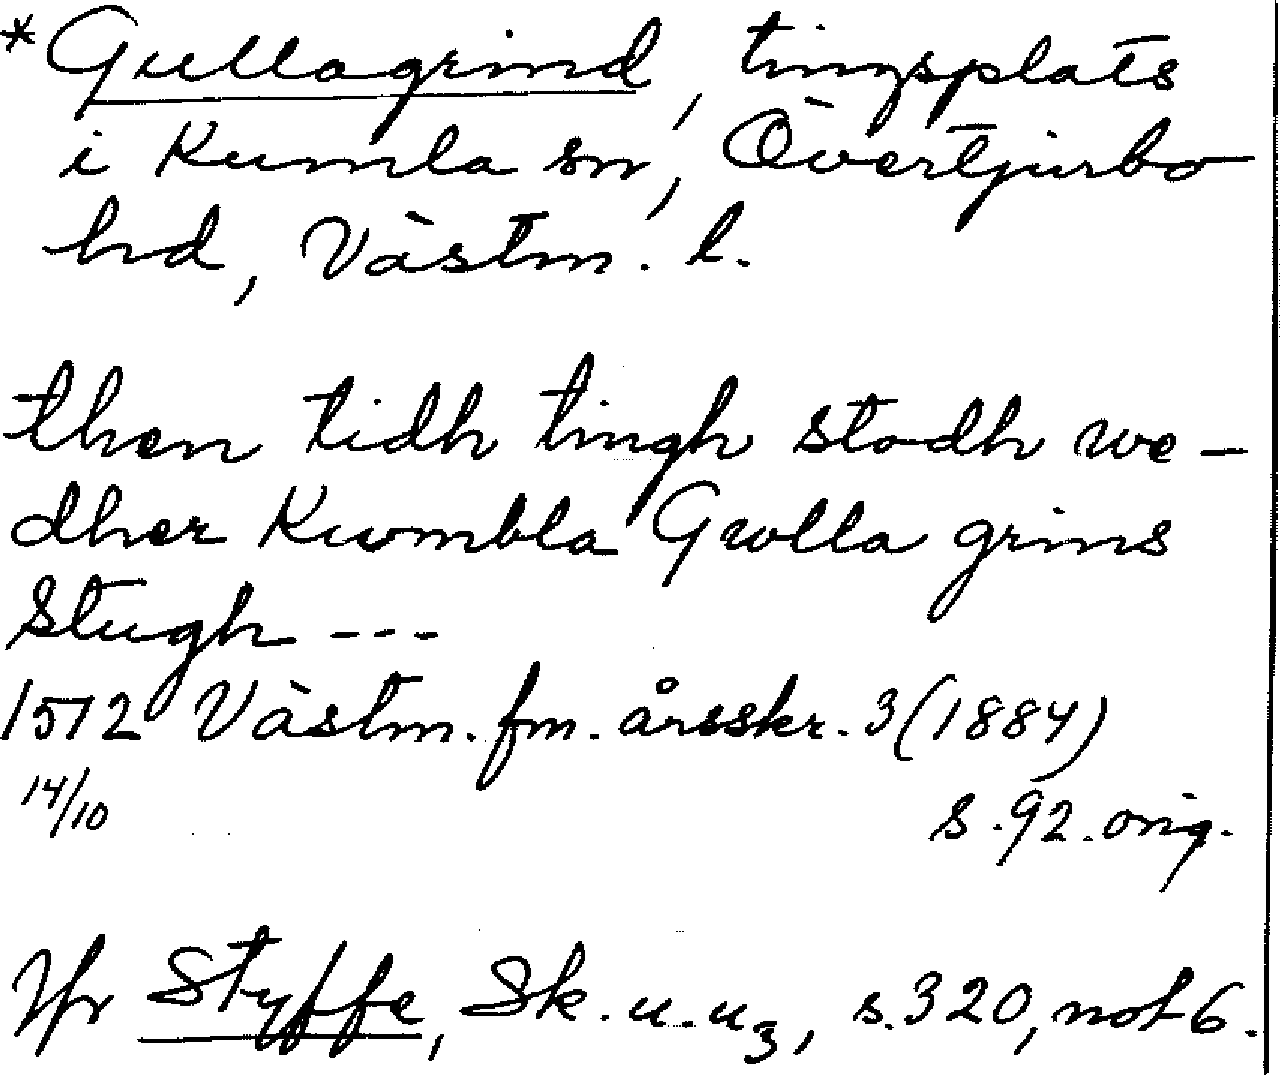 *Gullagrind, tingsplats
i Kumla sn, Övertjurbo
hd, Västm. l.
then tidh tingh stodh we-
dher Kwmbla Gwlla grins
Stugh ---
1572 Västm. fm. årsskr. 3 (1884)
14/10 s. 92. orig.
Jfr Styffe, Sk. u. u3, s. 320, not 6.